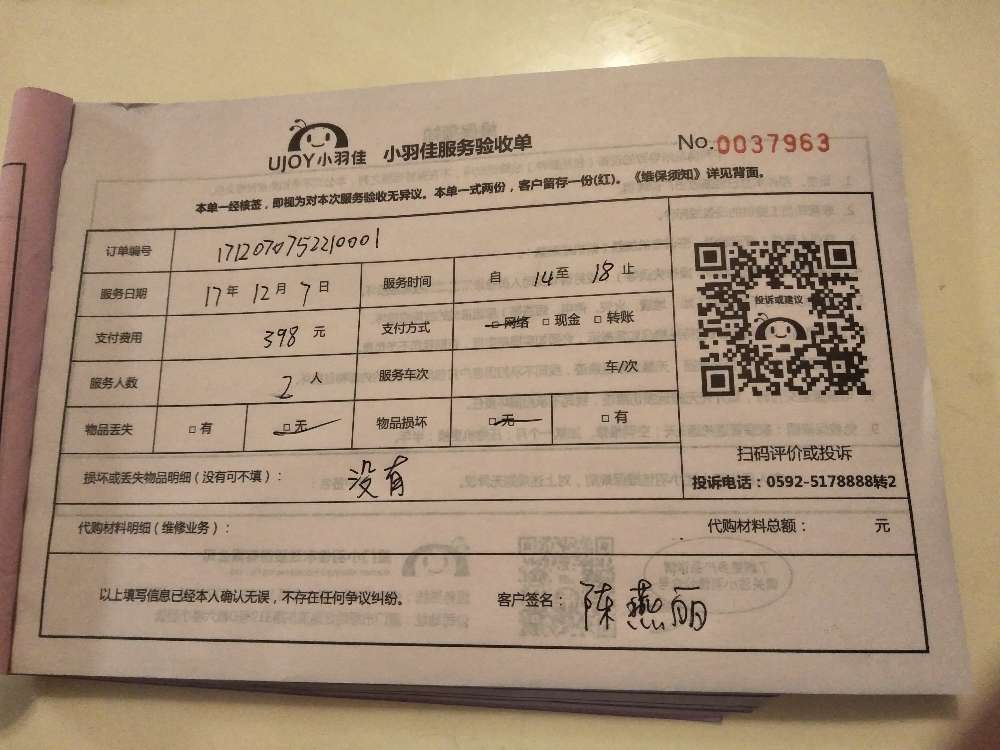 UJOY小羽佳 小羽佳服务验收单 No.0037963
本单一经核签，即视为对本次服务验收无异议。本单一式两份，客户留存一份(红)。《维保须知》详见背面。
订单编号 1712070752210001
服务日期 17年 12月 7日 服务时间 自 14至 18止
支付费用 398 元 支付方式 □网络 □现金 □转账
服务人数 2 人 服务车次 车/次
物品丢失 □有 □无 物品损坏 □无 □有
投诉或建议
扫码评价或投诉
投诉电话：0592-5178888转2
损坏或丢失物品明细（没有可不填）： 没有
代购材料明细（维修业务）： 代购材料总额： 元
以上填写信息已经本人确认无误，不存在任何争议纠纷。 客户签名： 陈燕丽